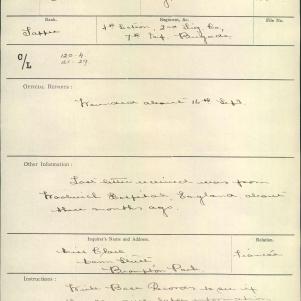 Rank. Regiment, &c. File No.
Sapper 4th Section, 2nd Sig Co,
7th Inf. Brigade.
C/L 120-4.
121-29
Official Reports:
Wounded about 16th Sept.
Other Information:
Last letter received was from
Woolwich Hospital, England about
three months ago.
Inquirer's Name and Address. Relation.
Miss Clare Fiancée
Street
Brompton Park.
Instructions:
Write Base Records to see if